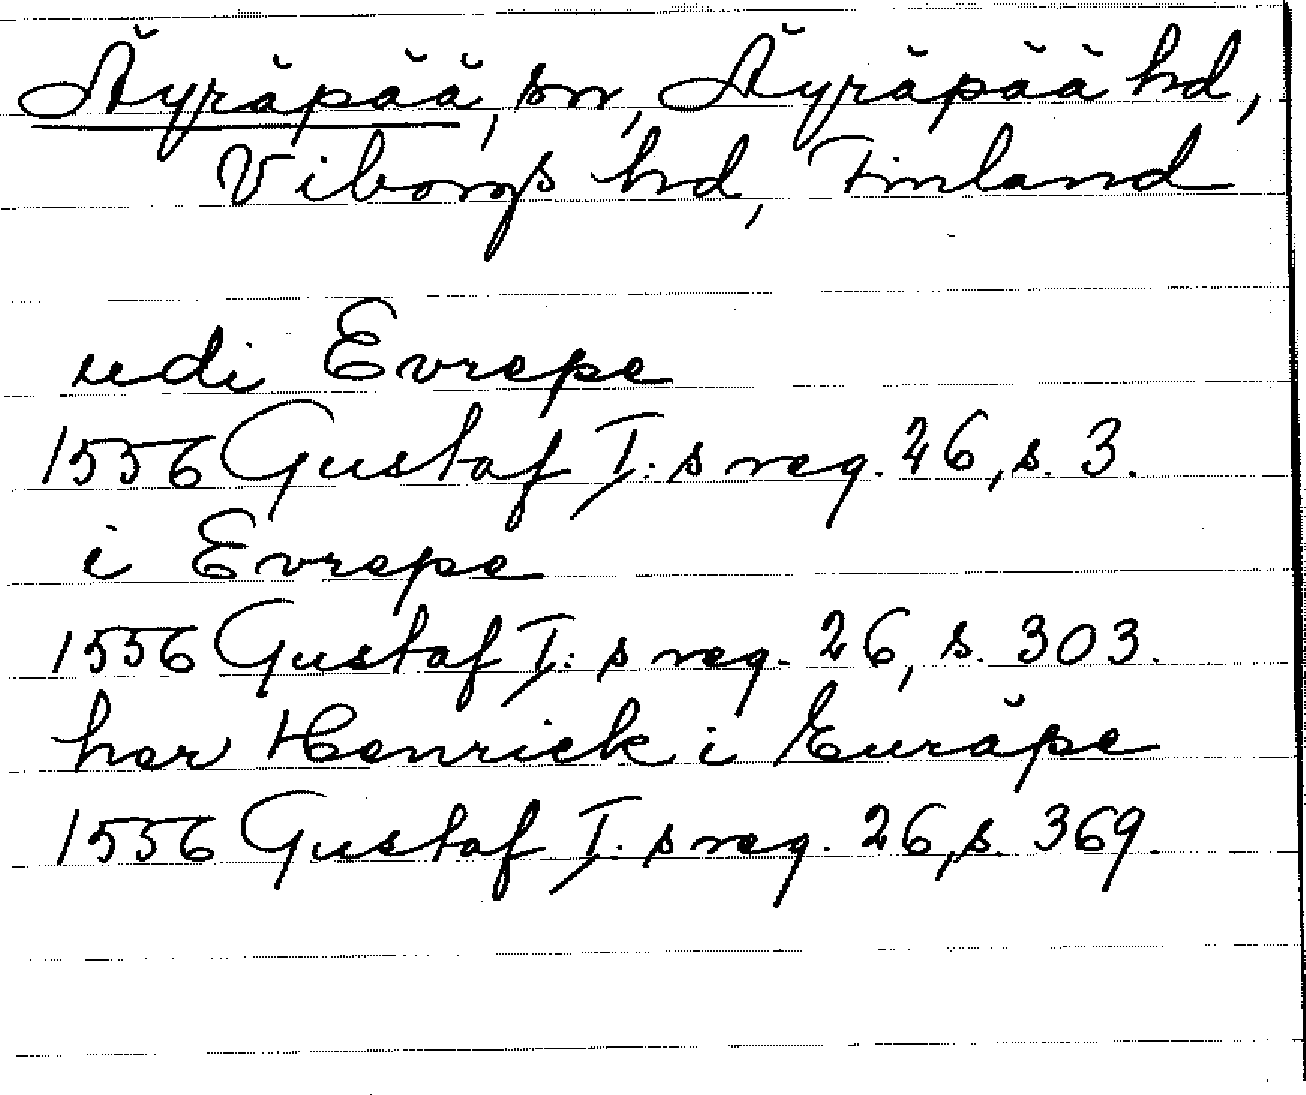 Äyräpää, sn, Äyräpää hd,
Viborgs hd, Finland
udi Evrepe
1556 Gustaf I:s reg. 26, s. 3.
i Evrepe
1556 Gustaf I:s reg. 26, s. 303.
her Henrick i Euräpe
1556 Gustaf I:s reg. 26, s. 369.